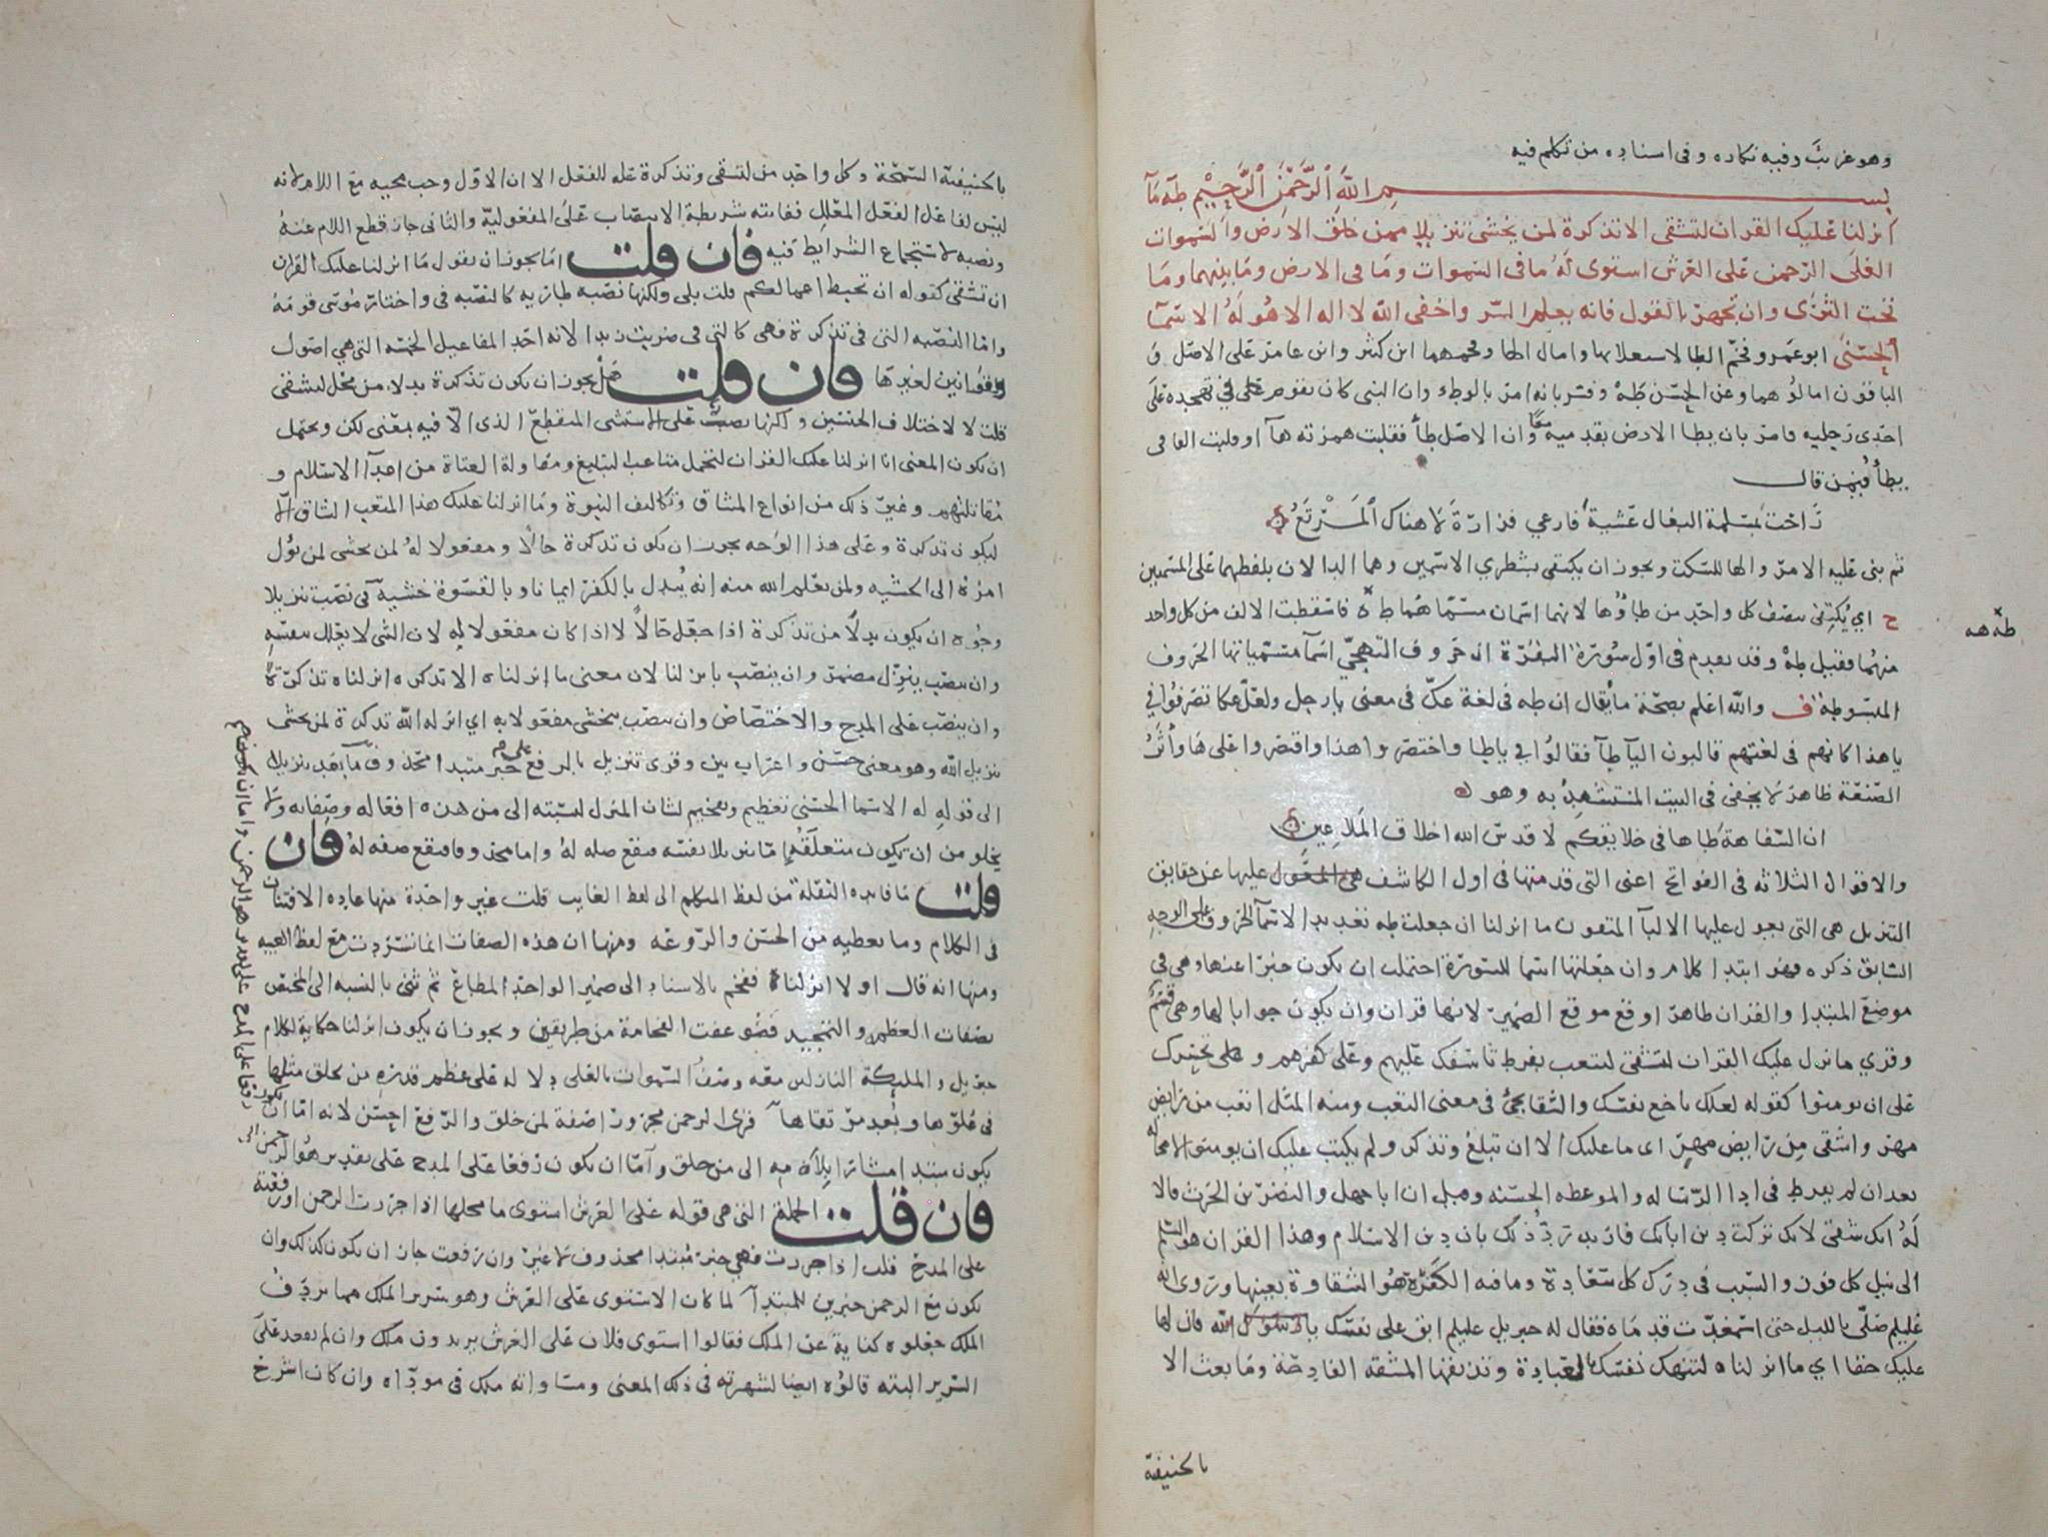 وهو غريب وفيه نكارة وفي اسناده من تكلم فيه
بسم الله الرحمن الرحيم طه ما
انزلنا عليك القران لتشقى الا تذكرة لمن يخشى تنزيلا ممن خلق الارض والسموات
العلى الرحمن على العرش استوى له ما في السموات وما في الارض وما بينهما وما
تحت الثرى وان تجهر بالقول فانه يعلم السر واخفى الله لا اله الا هو له الاسما
الحسنى ابو عمرو فخم الطا لاستعلائها وامال الها وفخمهما ابن كثير وابن عامر على الاصل و
الباقون امالوهما وعن الحسن طه وفسر بانه امر بالوطء وان النبي كان يقوم في تهجده على
احدى رجليه فامر بان يطا الارض بقدميه معا وان الاصل طأ فقلبت همزته هآ او قلبت الفا في
يطأ فيمن قال
راحت بمسلمة البغال عشية فارعي فزارة لا هناك المرتع
ثم بنى عليه الامر والها للسكت ويجوز ان يكتفى بشطري الاسمين وهما الدالان بلفظهما على المسميين
ح اي يكتفى بنصف كل واحد من طاوها لانهما اسمان مسماهما ط ه فاسقطت الالف من كل واحد
منهما فقيل طه وقد تقدم في اول سورة البقرة ان حروف التهجي اسما مسمياتها الحروف
المبسوطة ف والله اعلم بصحة ما يقال ان طه في لغة عك في معنى يا رجل ولعل عكا تصرفوا في
يا هذا كانهم في لغتهم قالبون اليآ طآ فقالوا في يا طا واختصروا هذا واقتصروا على ها واثر
الصنعة ظاهر لا يخفى في البيت المستشهد به وهو
ان السفاهة طاها في خلايقكم لا قدس الله اخلاق الملاعين
والاقوال الثلاثه في الفواتح اعني التي قدمتها في اول الكاشف عن حقايق
التنزيل هي التي يعول عليها الالبا المتقنون ما انزلنا ان جعلت طه تعديدا لاسما الحروف على الوجه
السابق ذكره فهو ابتدا كلام وان جعلتها اسما للسورة احتملت ان يكون خبرا عنها وهي في
موضع المبتدا والقران ظاهر اوقع موقع الضمير لانها قران وان يكون جوابا لها وهي قسم
وقري ما نزل عليك القران لتشقى لتتعب بفرط تاسفك عليهم وعلى كفرهم وتحسرك
على ان يومنوا كقوله لعلك باخع نفسك والشقا يجئ في معنى التعب ومنه المثل اتعب من رايض
مهر واشقى من رايض مهر اى ما عليك الا ان تبلغ وتذكر ولم يكتب عليك ان يومنوا لا محاله
بعد ان لم تفرط في ادا الرساله والموعظه الحسنه وقيل ان ابا جهل والنضر بن الحرث قالا
له انك شقي لانك تركت دين ابائك فاريد رد ذلك بان دين الاسلام وهذا القران هو السلم
الى نيل كل فوز والسبب في درك كل سعادة وما فيه الكفرة هو الشقاوة بعينها وروى انه
عليلم صلى بالليل حتى اسمغدت قدماه فقال له جبريل عليلم ابق على نفسك فان لها
عليك حقا اي ما انزلناه لتنهك نفسك بالعبادة وتذيقها المشقه الفادحة وما بعثت الا
بالحنيفة
طه هه
بالحنيفية السمحة وكل واحد من لتشقى وتذكرة علة للفعل الا ان الاول وجب مجيه مع اللام لانه
ليس لفاعل الفعل المعلل ففاتته شريطة الانتصاب على المفعولية والثاني جاز قطع اللام عنه
ونصبه لاستجماع الشرايط فيه فان قلت اما يجوز ان يقول ما انزلنا عليك القران
ان تشقى كقوله ان تحبط اعمالكم قلت بلى ولكنها نصبة طارية كالنصبه في واختار موسى قومه
واما النصبه التي في تذكرة فهي كالتي في ضربت زيدا لانه احد المفاعيل الخمسة التي هي اصول
وقوانين لغيرها فان قلت هل يجوز ان يكون تذكرة بدلا من محل لتشقى
قلت لا لاختلاف الجنسين ولكنها نصب على الاستثنا المنقطع الذي الا فيه بمعنى لكن ويحتمل
ان يكون المعنى انا انزلنا عليك القران لتحتمل متاعب التبليغ ومقاولة العتاة من اعدآ الاسلام و
مقاتلتهم وغير ذلك من انواع المشاق وتكاليف النبوة وما انزلنا عليك هذا المتعب الشاق الا
ليكون تذكرة وعلى هذا الوجه يجوز ان يكون تذكرة حالا ومفعولا له لمن يخشى لمن يؤل
امره الى الخشيه ولمن يعلم الله منه انه يبدل بالكفر ايمانا وبالقسوة خشية في نصب تنزيلا
وجوه ان يكون بدلا من تذكرة اذا جعل حالا لا اذا كان مفعولا له لان الشي لا يعلل بنفسه
وان ينصب بنزل مضمرا وان ينصب بانزلنا لان معنى ما انزلناه الا تذكره انزلناه تذكرة
وان ينصب على المدح والاختصاص وان ينصب بيخشى مفعولا به اي انزله الله تذكرة لمن يخشى
تنزيل الله وهو معنى حسن واعراب بين وقرى تنزيل بالرفع على خبر مبتدا محذوف ما بعد تنزيلا
الى قوله له الاسما الحسنى تعظيم وتفخيم لشان المنزل لنسبته الى من هذه افعاله وصفاته ولا
يخلو من ان يكون متعلقه اما تنزيلا نفسه فيقع صله له واما محذوفا فيقع صفه له فان
قلت ما فايده النقلة من لفظ المتكلم الى لفظ الغايب قلت غير واحدة منها عاده الافتنان
في الكلام وما يعطيه من الحسن والروعه ومنها ان هذه الصفات انما تسردت مع لفظ الغيبه
ومنها انه قال اولا انزلناه ففخم بالاسناد الى ضمير الواحد المطاع ثم ثنى بالنسبه الى المختص
بصفات العظمه والتمجيد فضوعفت الفخامة من طريقين ويجوز ان يكون انزلنا حكاية لكلام
جبريل والمليكة النازلين معه وصف السموات بالعلى دلاله على عظم قدرة من يخلق مثلها
في علوها وبعد مرتقاها قرى الرحمن مجرورا صفة لمن خلق والرفع احسن لانه اما ان
يكون مبتدا مشارا بلامه الى من خلق واما ان يكون رفعا على المدح على تقدير هو الرحمن
فان قلت الجملة التي هي قوله على العرش استوى ما محلها اذا جررت الرحمن او رفعته
على المدح قلت اذا جررت فهي خبر مبتدا محذوف لا غير وان رفعت جاز ان يكون كذلك وان
يكون مع الرحمن خبرين للمبتدآ لما كان الاستوى على العرش وهو سرير الملك مما يردف
الملك جعلوه كناية عن الملك فقالوا استوى فلان على العرش يريدون ملك وان لم يقعد على
السرير البته قالوه ايضا لشهرته في ذلك المعنى ومساواته ملك في موداه وان كان اشرح